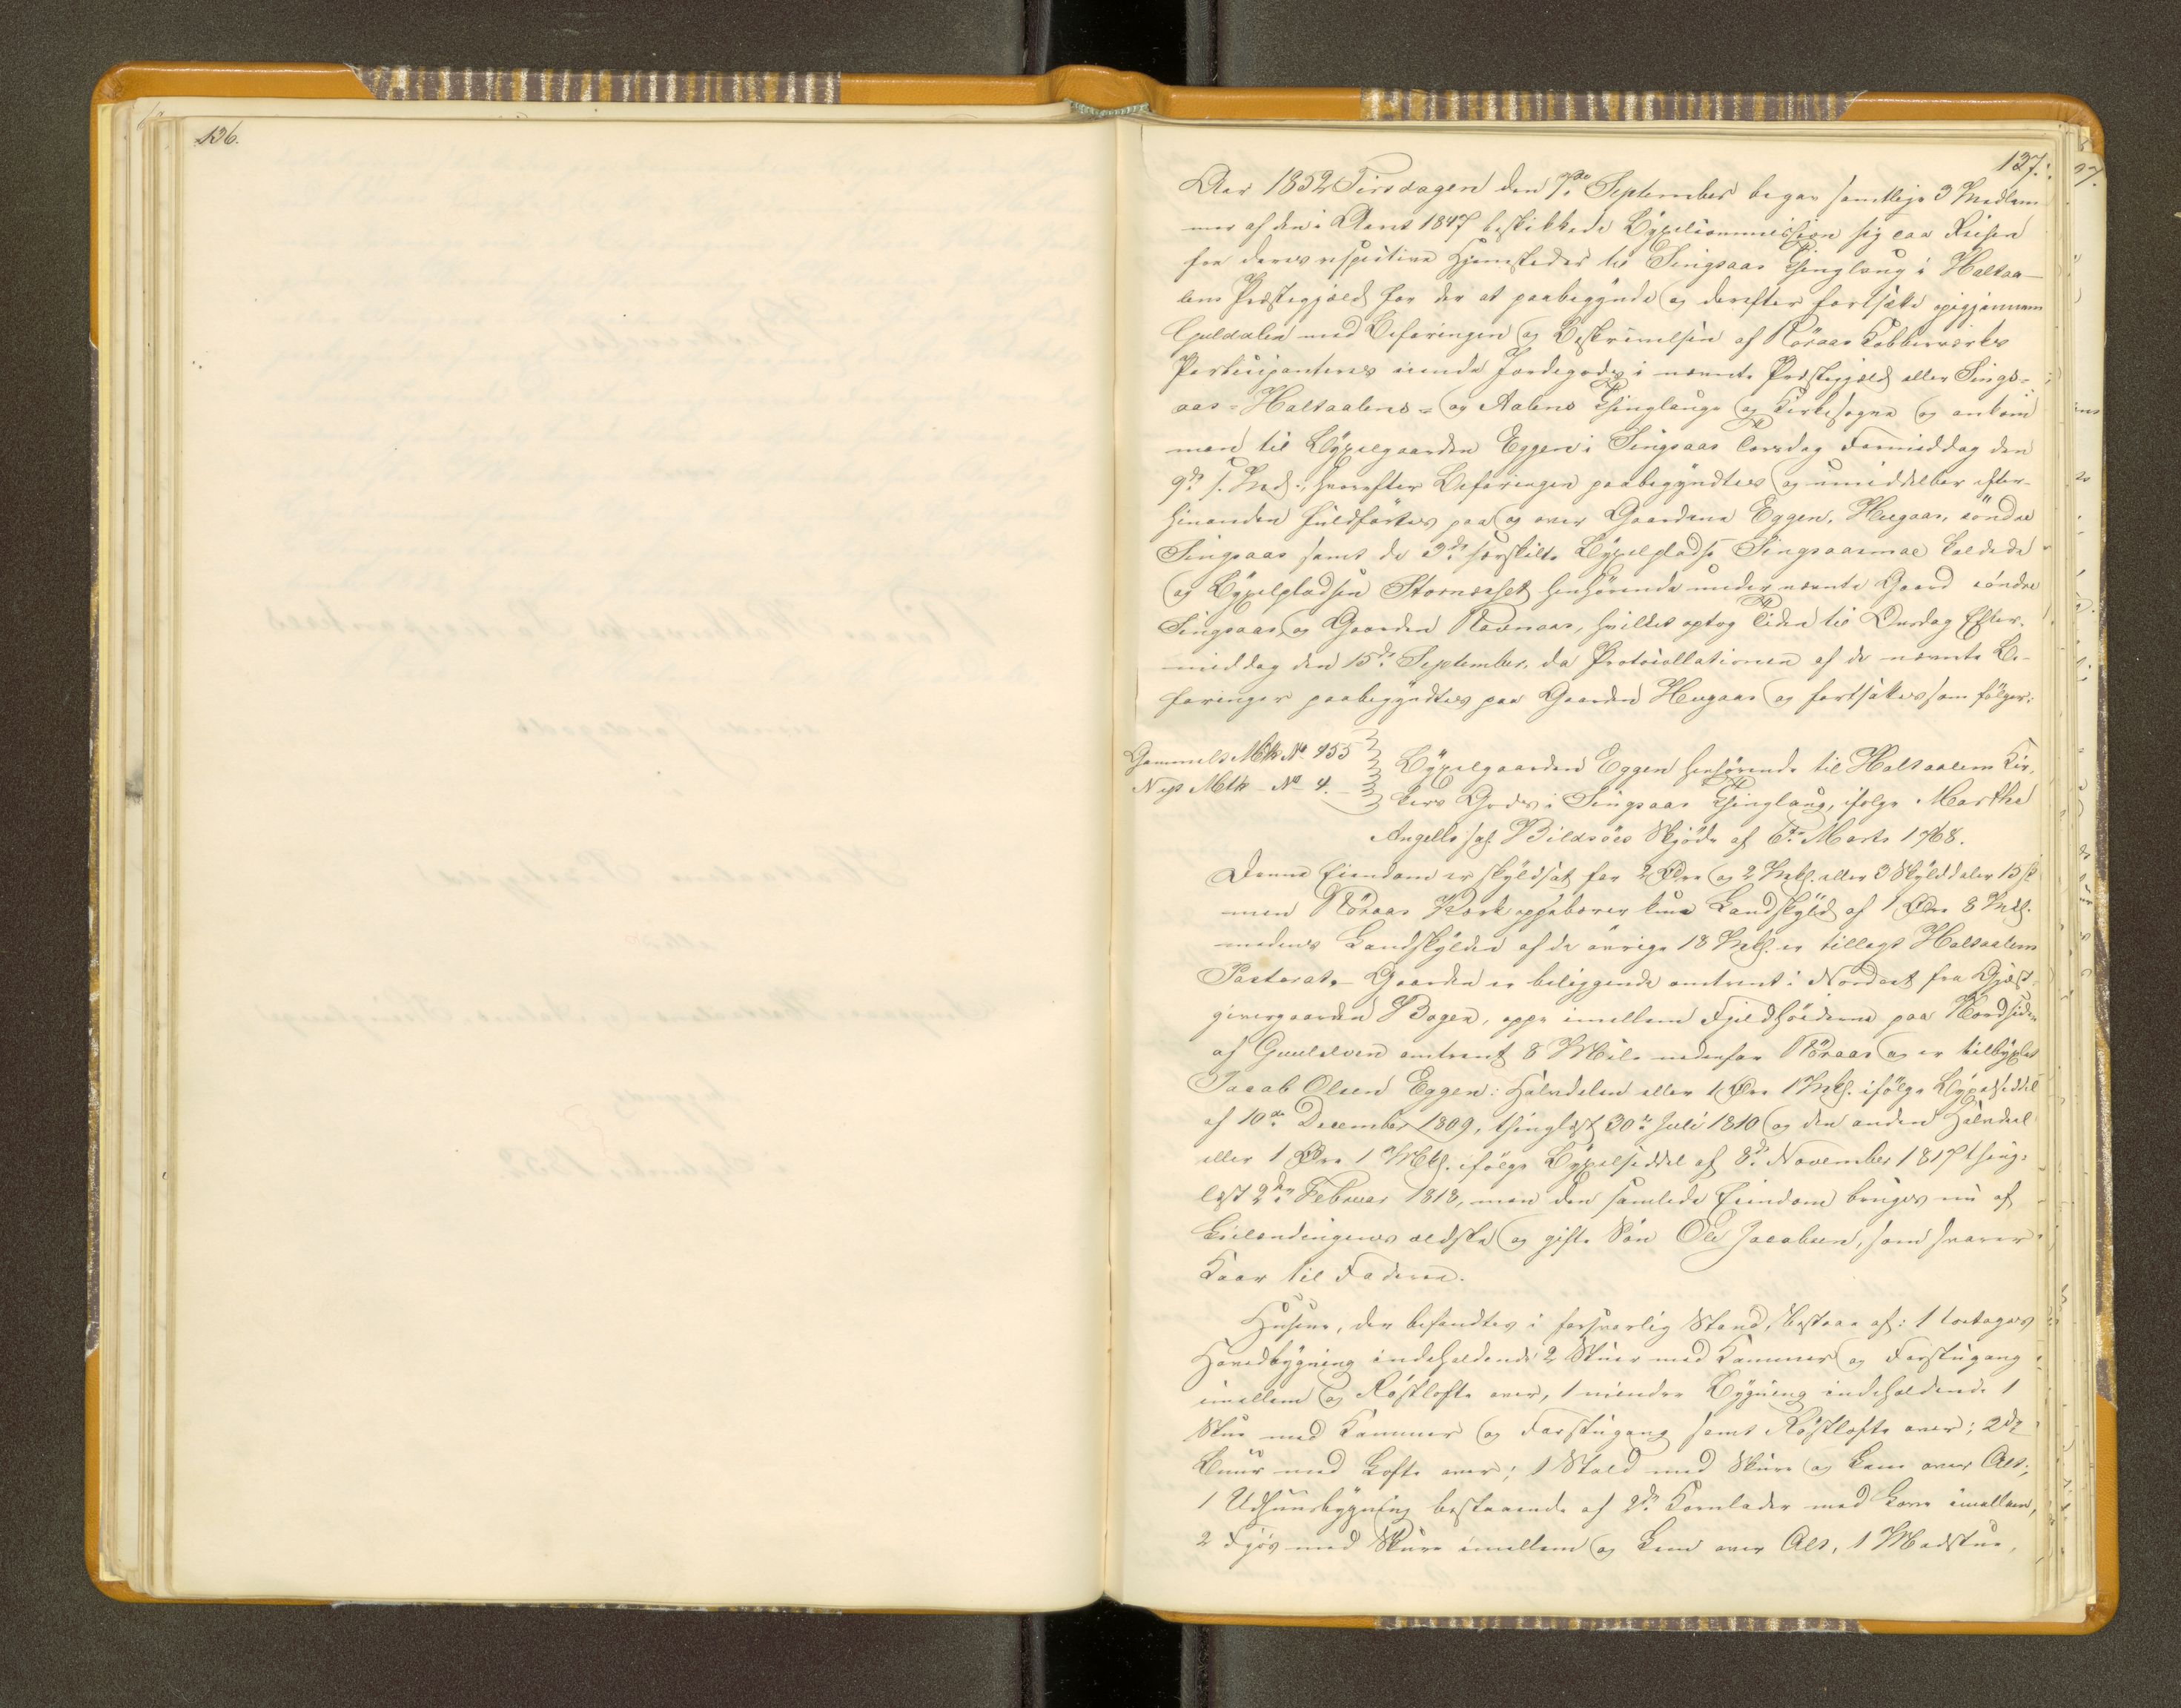 136.
137.
Aar 1852 Tirsdagen den 7de September begav samtlige 3 Medlem
mer af den i Aaret 1847 beskikkede Bygselcommission sig paa Reisen
fra deres respective Hjemsteder til Singsaas Thinglaug i Holtaa-
lens Præstegjæld for der at paabegynde og derefter fortsætte igjennem
Guldalen med Befaringen og Beskrivelsen af Röraas Kobberværks
Participanteres eiende Jordegods i nævnte Præstegjæld eller Sings-
aas- Holtaalens- og Aalens Thinglauge og Kirkesogne og ankom
man til Bygselgaarden Eggen i Singsaas Torsdag Formiddag den
9de s. Md., hvorefter Befaringen paabegyndtes og umiddelbar efter-
hinanden fuldførtes paa og over Gaardene Eggen, Hugaas, söndre
Singsaas samt de 3de særskilte Bygselpladse Singsaasmoe kaldede
og Bygselpladsen Stornæsset henhørende under nævnte Gaard söndre
Singsaas og Gaarden Ravnaas, hvilket optog Tiden til Onsdag Efter-
middag den 15de September, da Protocollationen af de nævnte Be-
faringer paabegyndtes paa Gaarden Hugaas og fortsattes som følger:
Gammelt Mtk. No 455
Nyt Mtk - No 4.
Bygselgaarden Eggen henhørende til Holtaalens Kir-
kers Gods i Singsaas Thinglaug, ifølge Martha
Angells sal. Bildsöes Skjöde af 6te Marts 1768.
Denne Eiendom er skyldsat for 2 Øre og 2 Mkl. eller 3 Skylddaler 15 s
men Röraas Værk oppebærer kun Landskyld af 1 Øre 8 Mkl.
medens Landskylden af de övrige 18 Mkl. er tillagt Holtaalens
Pastorat. Gaarden er beliggende omtrent i Nordost fra Gjæst-
givergaarden Bogen, oppe imellem Fjeldhöiderne paa Nordsiden
af Guulelven omtrent 8 Mile nedenfor Röraas og er tilbygslet
Jacob Olsen Eggen: Halvdelen eller 1 Øre 1 Mkl. ifölge Bygselseddel
af 10de December 1809, thinglæst 30te Juli 1810 og den anden Halvdeel
eller 1 Øre 1 Mkl. ifölge Bygselseddel af 8de November 1817 thing-
læst 2den Februar 1818, men den samlede Eiendom bruges nu af
Leilændingens ældste og gifte Sön Ole Jacobsen, som svarer
Kaar til Faderen.
Husene, der befandtes i forsvarlig Stand, bestaae af: 1 toetages
Hovedbygning indeholdende 2 Stuer med Kammer og Forstugang
imellem og Röstlofte over, 1 mindre Bygning indeholdende 1
Stue med Kammer og Forstugang samt Röstlofte over; 2de
Buur med Lofte over; 1 Stald med Skure og Lem over Alt;
1 Udhuusbygning bestaaende af 2de Kornlader med Love imellem,
2 Fjös med Skure imellem og Lem over Alt, 1 Madstue,